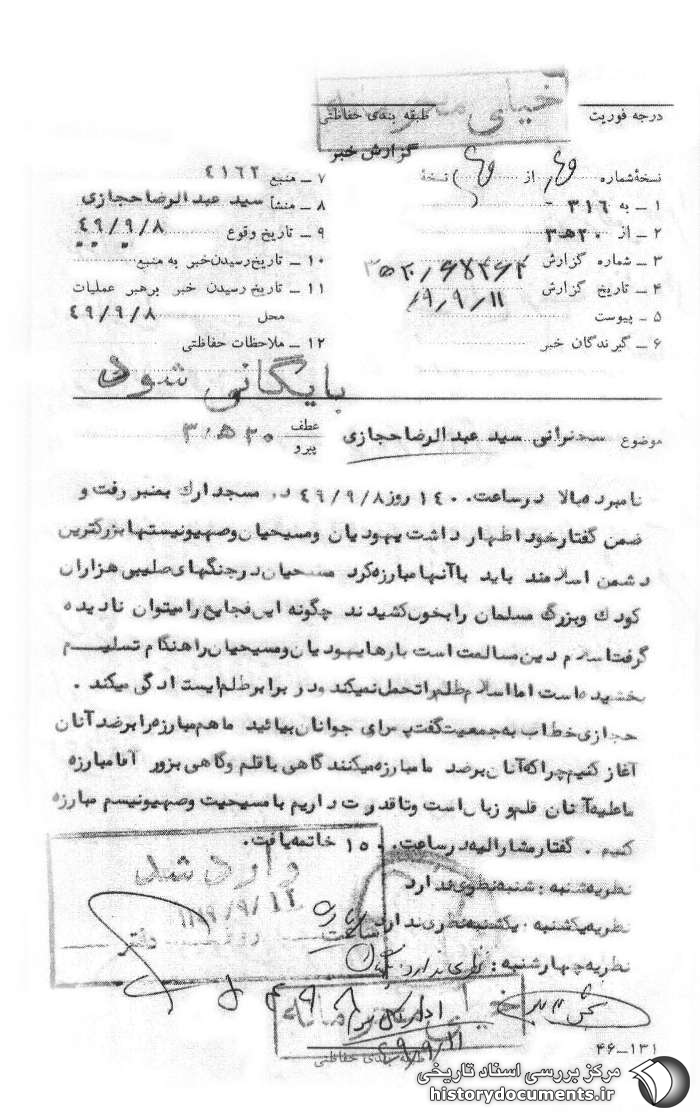 خیلی محرمانه
درجه فوریت
طبقه بندی حفاظتی
گزارش خبر
نسخهٔ شماره از نسخهٔ
۱ ـ به ۳۱۶
۲ ـ از ۲۰ه۳
۳ ـ شماره گزارش
۴ ـ تاریخ گزارش ۹/۹/۱۱
۵ ـ پیوست
۶ ـ گیرندگان خبر
۷ ـ منبع ۴۱۶۲
۸ ـ منشأ سید عبدالرضا حجازی
۹ ـ تاریخ وقوع ۴۹/۹/۸
۱۰ ـ تاریخ رسیدن خبر به منبع
۱۱ ـ تاریخ رسیدن خبر برهبر عملیات
محل ۴۹/۹/۸
۱۲ ـ ملاحظات حفاظتی
بایگانی شود
موضوع سخنرانی سید عبدالرضا حجازی
عطف
پیرو
۲۰ه۳
نامبرده بالا در ساعت ۱۴۰۰ روز ۴۹/۹/۸ در مسجد ارك بمنبر رفت و
ضمن گفتار خود اظهار داشت یهودیان ومسیحیان وصهیونیستها بزرگترین
دشمن اسلامند باید باآنها مبارزه کرد مسیحیان در جنگهای صلیبی هزاران
کودك وبزرگ مسلمان را بخون کشیدند چگونه این فجایع را میتوان نادیده
گرفت اسلام دین مسالمت است بارها یهودیان ومسیحیان را هنگام تسلیم
بخشیده است اما اسلام ظلم را تحمل نمیکند و در برابر ظلم ایستادگی میکند .
حجازی خطاب به جمعیت گفت پس ای جوانان بیائید ما هم مبارزه را برضد آنان
آغاز کنیم چرا که آنان برضد ما مبارزه میکنند گاهی با قلم وگاهی بزور اما مبارزه
ما علیه آنان قلم و زبان است وتا قدرت داریم با مسیحیت وصهیونیسم مبارزه
کنیم . گفتار مشارالیه در ساعت ۱۵۰۰ خاتمه یافت .
نظریه شنبه : شنبه نظری ندارد
نظریه یکشنبه . یکشنبه نظری ندارد
نظریه چهارشنبه : نظری ندارد
وارد شد
۱۳۴۹/۹/۱۲
ساعت دفتر
خیلی محرمانه
اداره کل سوم
۴۹/۹/۱۱
طبقه بندی حفاظتی
۴۶ـ۱۳۱
مرکز بررسی اسناد تاریخی
historydocuments.ir